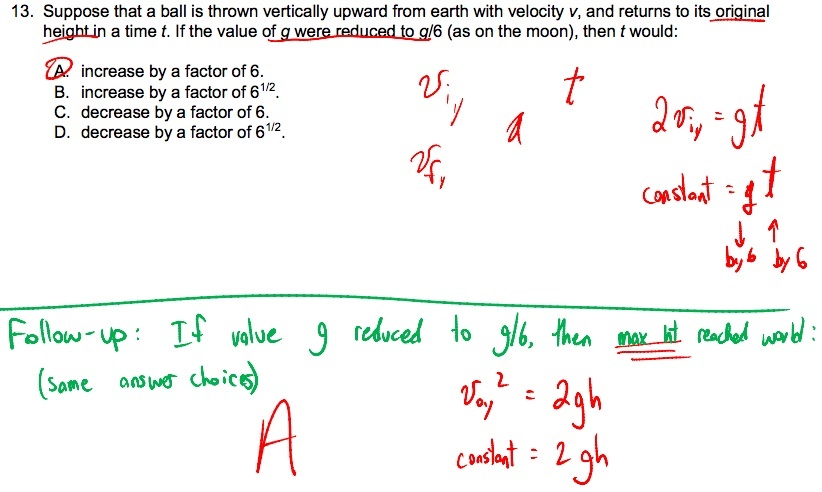 13. Suppose that a ball is thrown vertically upward from earth with velocity v, and returns to its original
height in a time t. If the value of g were reduced to g/6 (as on the moon), then t would:
A. increase by a factor of 6.
B. increase by a factor of 6^1/2.
C. decrease by a factor of 6.
D. decrease by a factor of 6^1/2.
v_iy t
a
v_fy
2v_iy = gt
constant = g t
↓ ↑
by 6 by 6
Follow-up: If value g reduced to g/6, then max ht reached would:
(same answer choices)
A
v_oy^2 = 2gh
constant = 2 gh